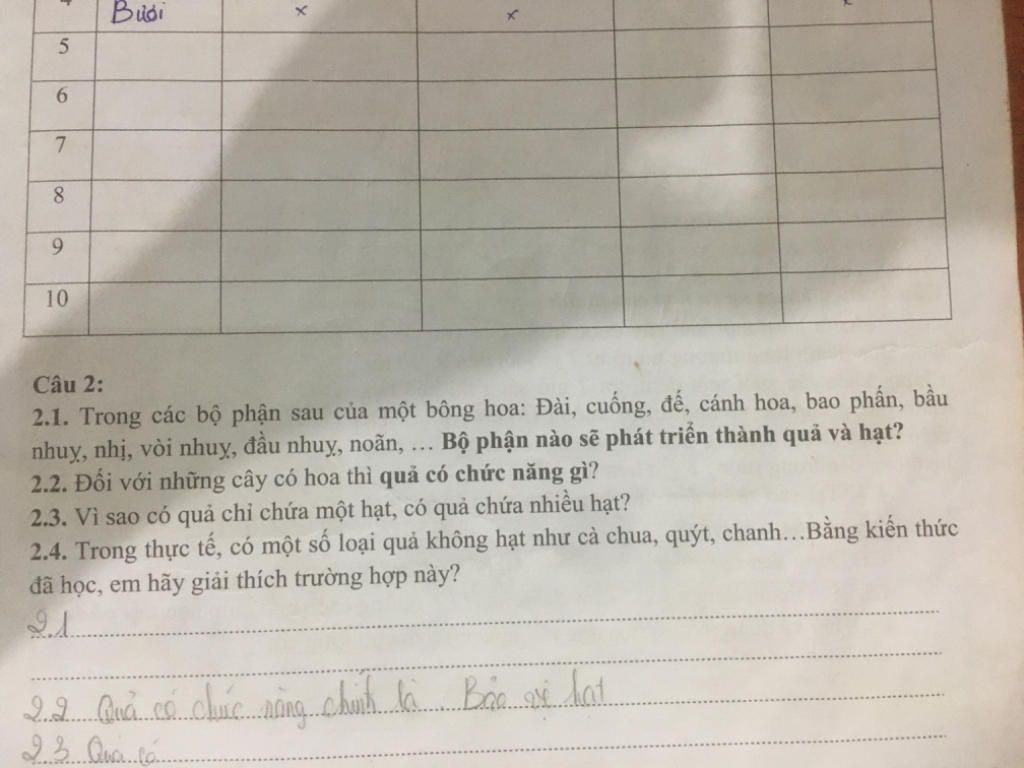 4 Bưởi x x x
5
6
7
8
9
10
Câu 2:
2.1. Trong các bộ phận sau của một bông hoa: Đài, cuống, đế, cánh hoa, bao phấn, bầu
nhuỵ, nhị, vòi nhuỵ, đầu nhuỵ, noãn, … Bộ phận nào sẽ phát triển thành quả và hạt?
2.2. Đối với những cây có hoa thì quả có chức năng gì?
2.3. Vì sao có quả chỉ chứa một hạt, có quả chứa nhiều hạt?
2.4. Trong thực tế, có một số loại quả không hạt như cà chua, quýt, chanh…Bằng kiến thức
đã học, em hãy giải thích trường hợp này?
2.1
2.2 Quả có chức năng chính là. Bảo vệ hạt
2.3 Quả có